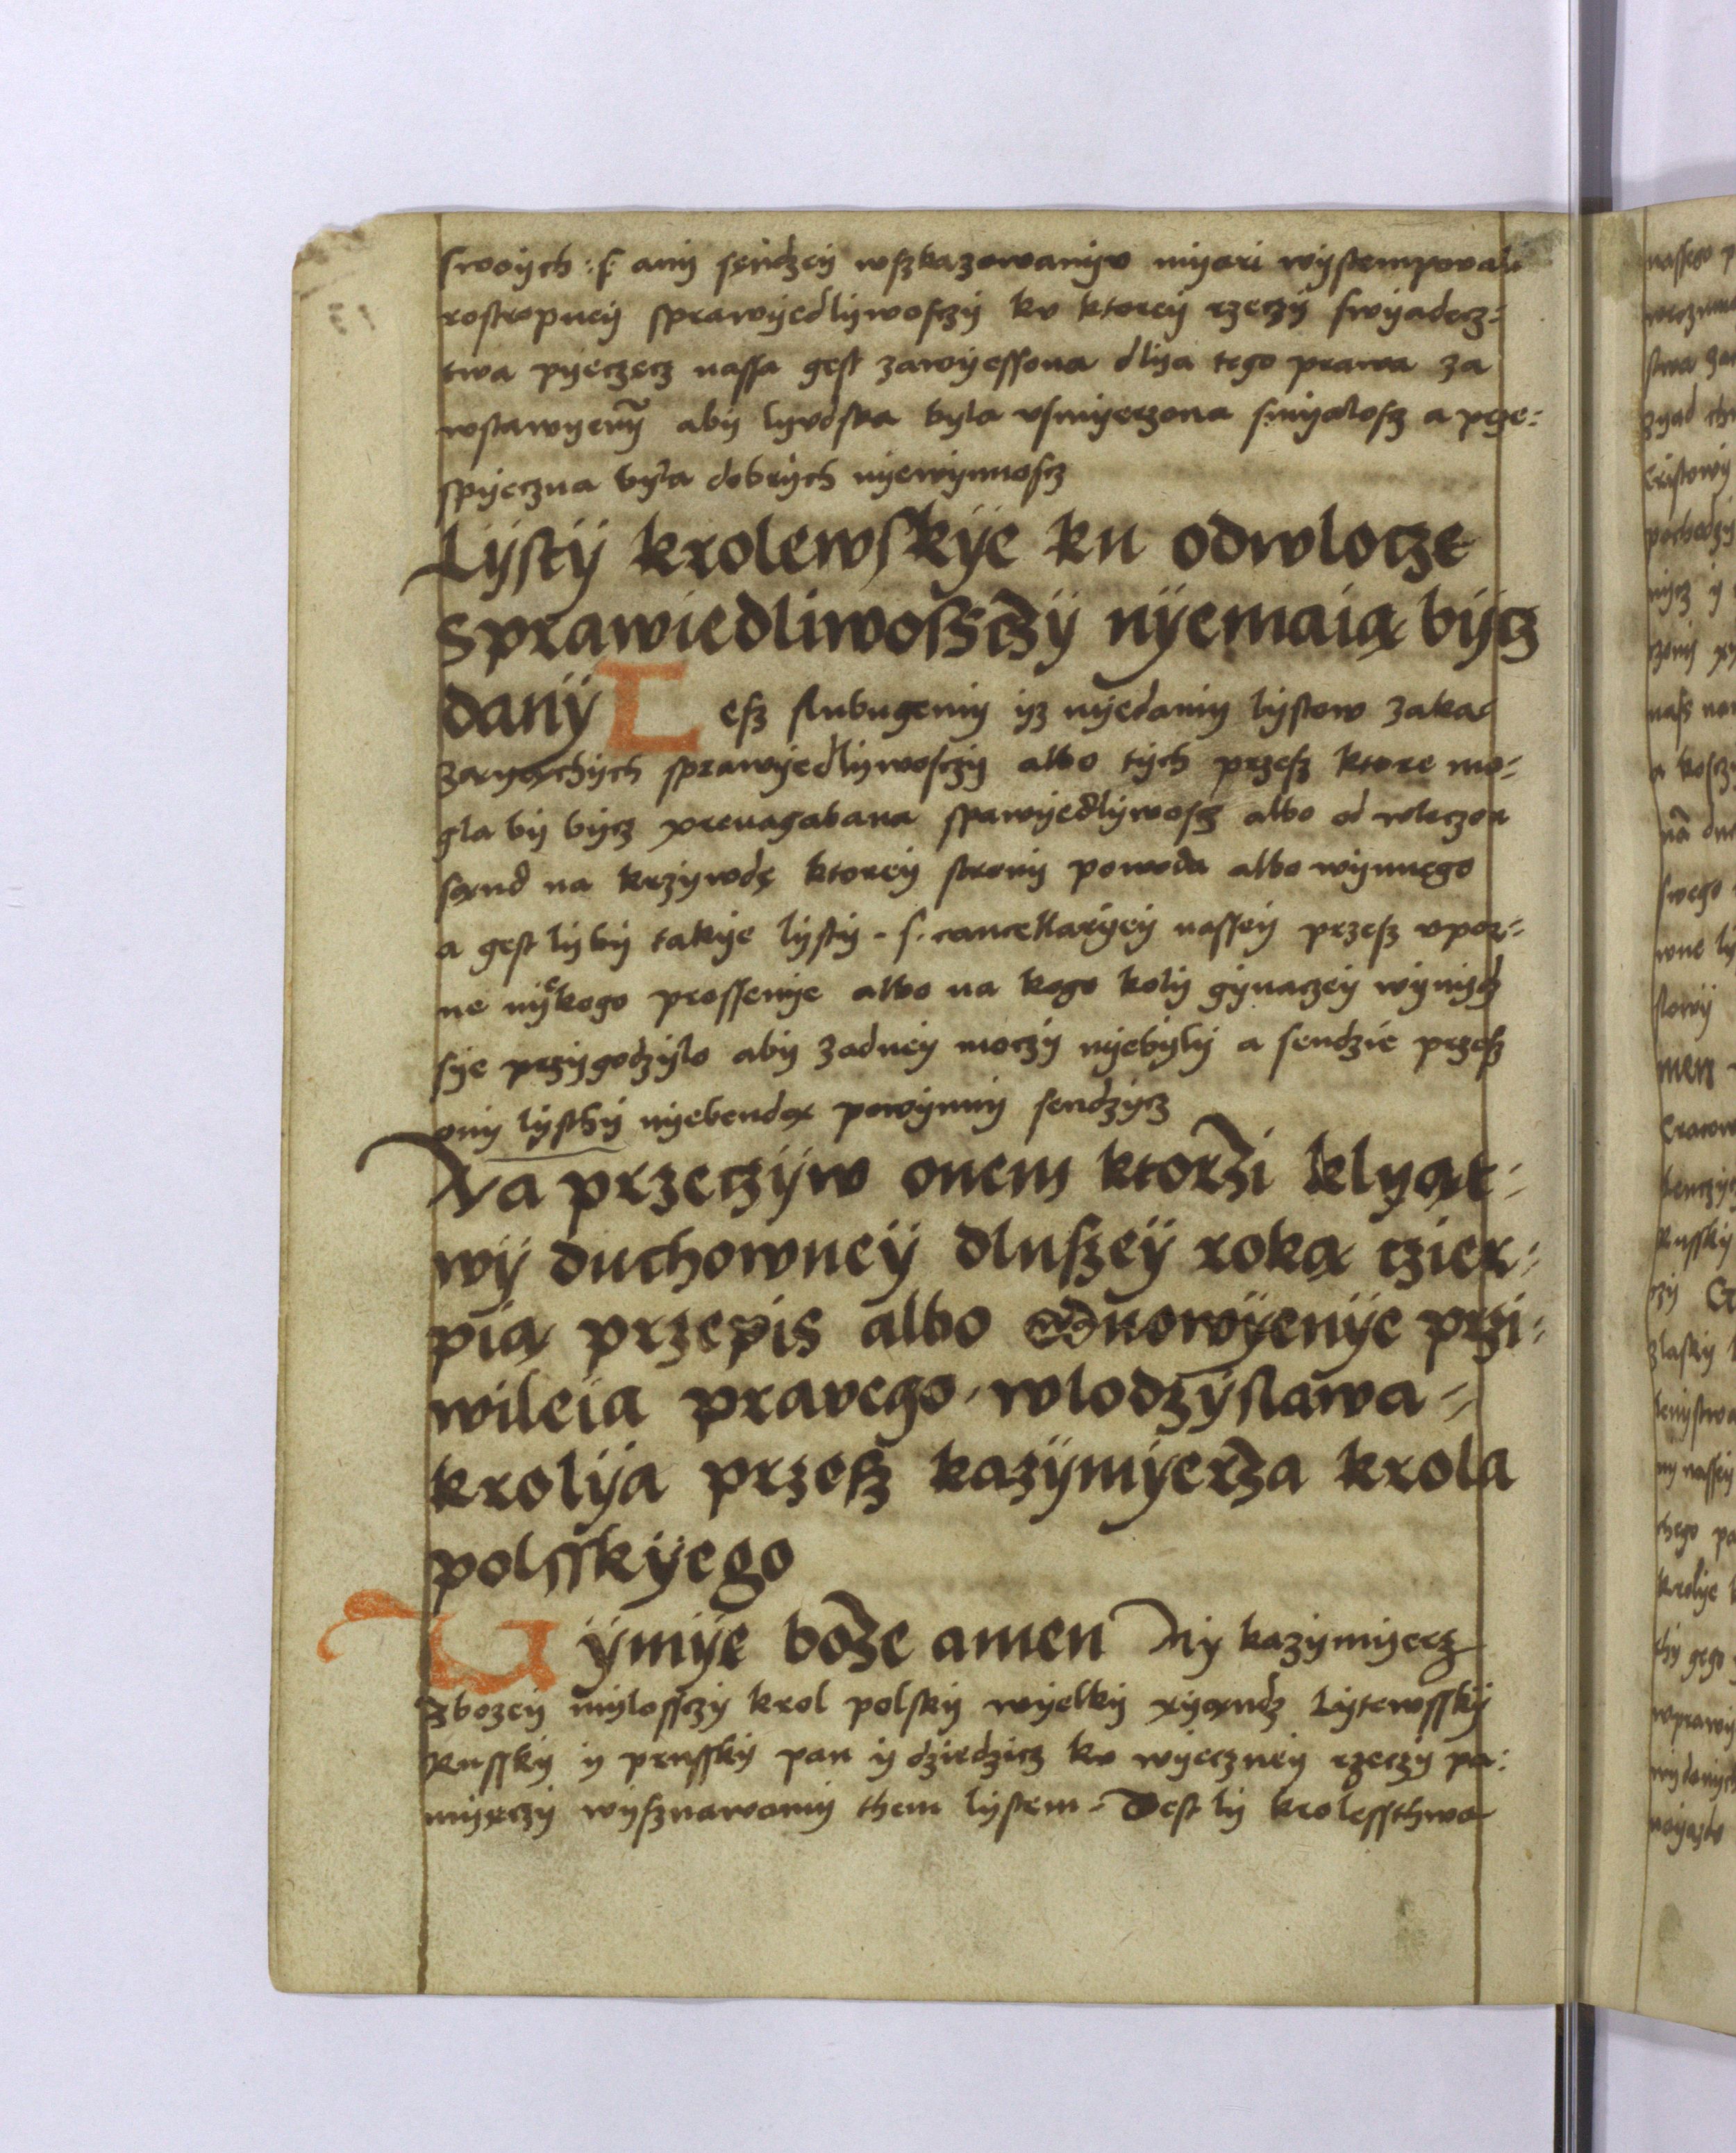 swoych :s: any sendzey wszkazowanyv myari wystempovali
rostropney sprawyedlywosczy kv ktorey rzeczy swyadecz=
twa pyeczęcz nassa gest zawyessona dlya tego prawa za
wstawyeny aby lyvdska byla vsmyerzona smyalosz a prze=
spyeczna była dobrych nyewynnoscz
Lysty krolewskye ku odwlocze
sprawiedliwoszczy nyemaią bycz
dany Tesz slubugemy yz nyedamy lystow zaka=
zaryączhych sprawyedlywosczy albo tych przesz ktore mo=
gla by bycz prenagabana spawyedlywoscz albo od wleczon
sąnd na krzywdę ktorey strony powoda albo wynnęgo
a gest ly by takye lysty - s. cancellaryey nassey przesz vpor=
ne nyekogo prossenye albo na kogo koly gynaczey wynydz
sye przygodzylo aby zadney moczy nyebyly a sendzie przesz
ony lysthy nyebendą powynny sendzycz
Na przeczyw onem ktorzi klyąt=
wy duchowney dluszey roką czier=
pią przepis albo odnowyenye przi=
wileia pravego wlodzyslawa =
krolya przesz kazymyerza krola
polsskyego
W ymye boze amen My kazymyecz
zbozey mylossczy krol polsky wyelky xyąndz Lytewssky
Russky y prussky pan y dziedzicz kv wyeczney rzeczy pa=
myęczy wysznawamy them lystem - Gest ly krolessthwa